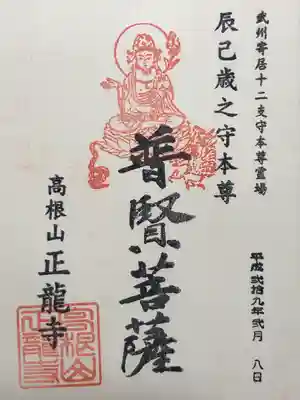 武州寄居十二支守本尊霊場
辰巳歳之守本尊
普賢菩薩
平成弐拾九年弐月八日
高根山正龍寺
高根山正龍寺